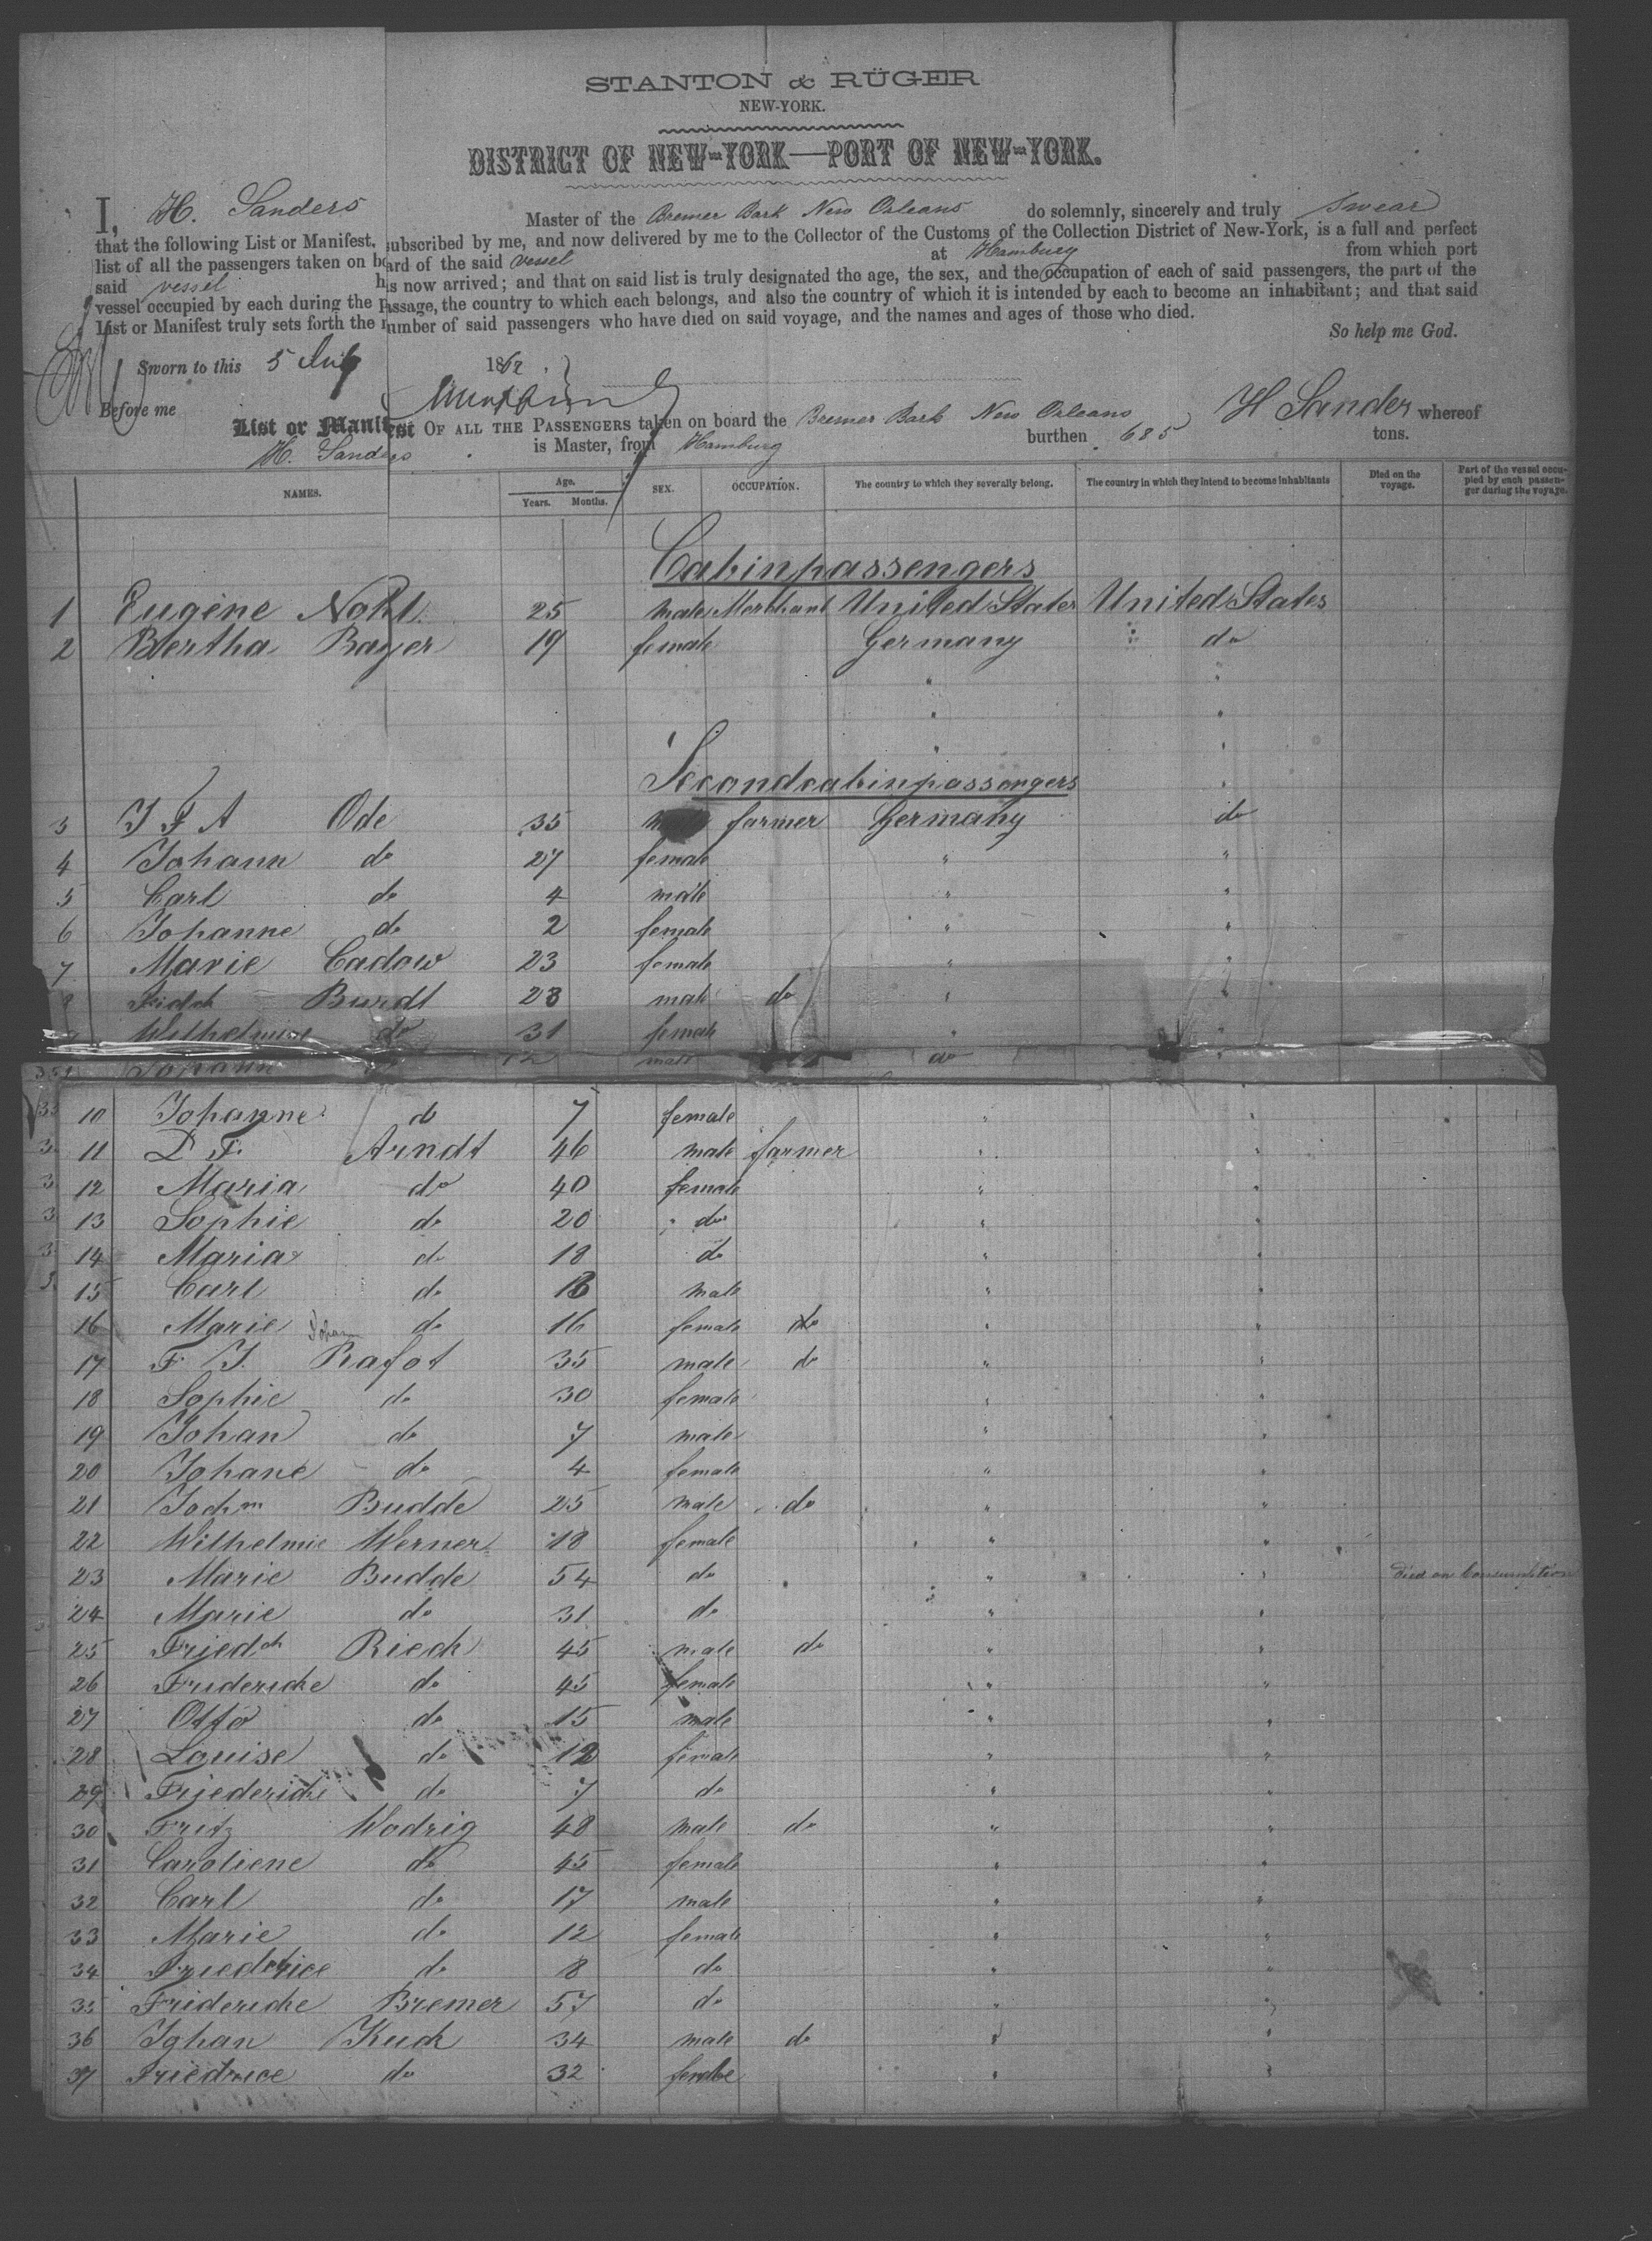 STANTON & RÜGER
NEW-YORK.
DISTRICT OF NEW-YORK—PORT OF NEW-YORK.
I, H. Sanders Master of the Bremer Bark New Orleans do solemnly, sincerely and truly swear
that the following List or Manifest, subscribed by me, and now delivered by me to the Collector of the Customs of the Collection District of New-York, is a full and perfect
list of all the passengers taken on board of the said vessel at Hamburg from which port
said vessel has now arrived; and that on said list is truly designated the age, the sex, and the occupation of each of said passengers, the part of the
vessel occupied by each during the passage, the country to which each belongs, and also the country of which it is intended by each to become an inhabitant; and that said
List or Manifest truly sets forth the number of said passengers who have died on said voyage, and the names and ages of those who died.
So help me God.
Sworn to this 5 July 1862.
Before me H Sander
List or Manifest OF ALL THE PASSENGERS taken on board the Bremer Bark New Orleans whereof
H. Sanders is Master, from Hamburg burthen 685 tons.
NAMES. Age. Years. Months. SEX. OCCUPATION. The country to which they severally belong. The country in which they intend to become inhabitants Died on the voyage. Part of the vessel occupied by each passenger during the voyage.
Cabinpassengers
1 Eugène Nohl 25 male Merchant United States United States
2 Bertha Bayer 19 female Germany do
" "
" "
" "
Secondcabinpassengers "
3 J F A Ode 35 male farmer Germany do
4 Johann do 27 female " "
5 Carl do 4 male " "
6 Johanne do 2 female " "
7 Marie Cadow 23 female " "
8 Fridch Burdt 28 male do " "
Wilhelmine do 31 female " "
Johann 12 male do "
10 Johanne do 7 female " "
11 D F. Arndt 46 male farmer " "
12 Maria do 40 female " "
13 Sophie do 20 do " "
14 Maria do 18 do " "
15 Carl do male " "
16 Marie do 16 female do " "
Johann
17 F J. Rafot 35 male do " "
18 Sophie do 30 female " "
19 Johan do 7 male " "
20 Johane do 4 female " "
21 Jochm Budde 25 male do " "
22 Wilhelmie Werner 18 female " "
23 Marie Budde 54 do " " Died on Consumption
24 Marie do 31 do " "
25 Friedch Rieck 45 male do " "
26 Fridericke do 45 female " "
27 Otto do 15 male " "
28 Louise do 12 female " "
29 Friedericke do 7 do " "
30 Fritz Wodrig 48 male do " "
31 Caroliene do 45 female " "
32 Carl do 17 male " "
33 Marie do 12 female " "
34 Friederice do 8 do " "
35 Fridericke Bremer 57 do " "
36 Johan Kuck 34 male do " "
37 Friedrice do 32 female " "